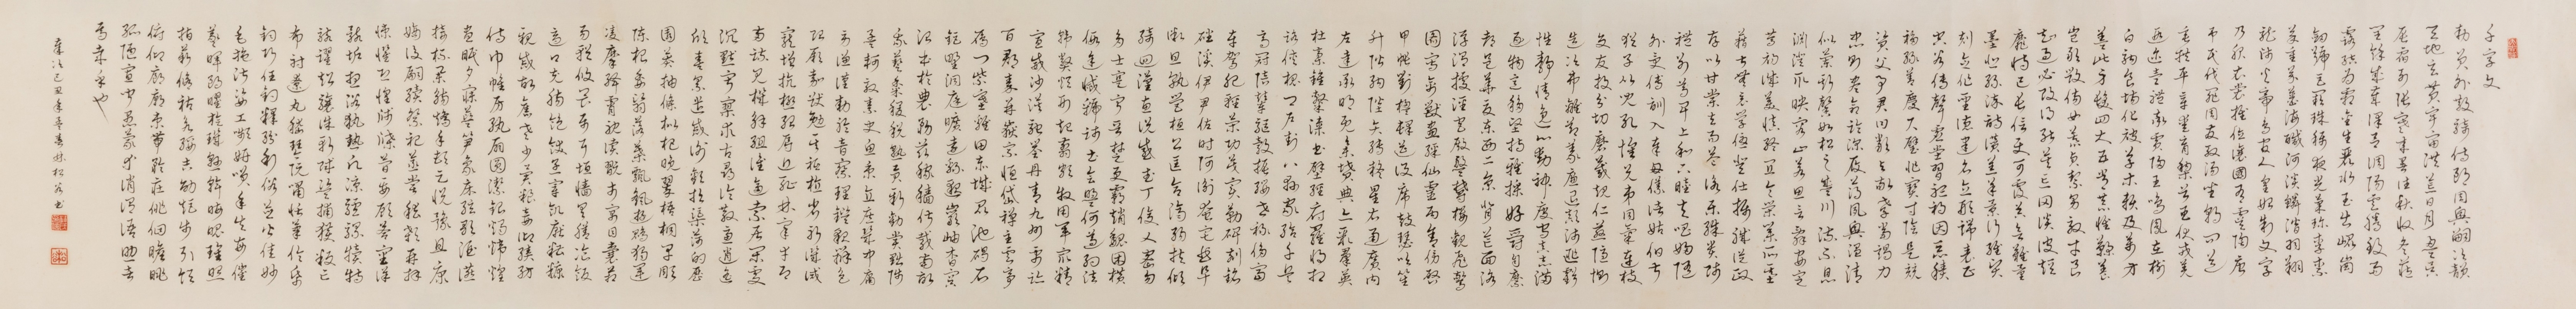 千字文
敕員外散騎侍郎周興嗣次韻
天地玄黃宇宙洪荒日月盈昃
辰宿列張寒來暑往秋收冬藏
閏餘成歲律呂調陽雲騰致雨
露結為霜金生麗水玉出崑岡
劍號巨闕珠稱夜光菓珍李柰
菜重芥薑海鹹河淡鱗潛羽翔
龍師火帝鳥官人皇始制文字
乃服衣裳推位讓國有虞陶唐
弔民伐罪周發殷湯坐朝問道
垂拱平章愛育黎首臣伏戎羌
遐邇壹體率賓歸王鳴鳳在樹
白駒食場化被草木賴及萬方
蓋此身髮四大五常恭惟鞠養
豈敢毀傷女慕貞絜男效才良
知過必改得能莫忘罔談彼短
靡恃己長信使可覆器欲難量
墨悲絲染詩讚羔羊景行維賢
剋念作聖德建名立形端表正
空谷傳聲虛堂習聽禍因惡積
福緣善慶尺璧非寶寸陰是競
資父事君曰嚴與敬孝當竭力
忠則盡命臨深履薄夙興溫凊
似蘭斯馨如松之盛川流不息
淵澄取映容止若思言辭安定
篤初誠美慎終宜令榮業所基
藉甚無竟學優登仕攝職從政
存以甘棠去而益詠樂殊貴賤
禮別尊卑上和下睦夫唱婦隨
外受傅訓入奉母儀諸姑伯叔
猶子比兒孔懷兄弟同氣連枝
交友投分切磨箴規仁慈隱惻
造次弗離節義廉退顛沛匪虧
性靜情逸心動神疲守真志滿
逐物意移堅持雅操好爵自縻
都邑華夏東西二京背邙面洛
浮渭據涇宮殿盤鬱樓觀飛驚
圖寫禽獸畫綵仙靈丙舍傍啟
甲帳對楹肆筵設席鼓瑟吹笙
升階納陛弁轉疑星右通廣內
左達承明既集墳典亦聚群英
杜稾鍾隸漆書壁經府羅將相
路俠槐卿戶封八縣家給千兵
高冠陪輦驅轂振纓世祿侈富
車駕肥輕策功茂實勒碑刻銘
磻溪伊尹佐時阿衡奄宅曲阜
微旦孰營桓公匡合濟弱扶傾
綺迴漢惠說感武丁俊乂密勿
多士寔寧晉楚更霸趙魏困橫
假途滅虢踐土會盟何遵約法
韓弊煩刑起翦頗牧用軍最精
宣威沙漠馳譽丹青九州禹跡
百郡秦并嶽宗恆岱禪主云亭
雁門紫塞雞田赤城昆池碣石
鉅野洞庭曠遠緜邈巖岫杳冥
治本於農務茲稼穡俶載南畝
我藝黍稷稅熟貢新勸賞黜陟
孟軻敦素史魚秉直庶幾中庸
勞謙謹敕聆音察理鑑貌辨色
貽厥嘉猷勉其祗植省躬譏誡
寵增抗極殆辱近恥林皋幸即
兩疏見機解組誰逼索居閒處
沉默寂寥求古尋論散慮逍遙
欣奏累遣慼謝歡招渠荷的歷
園莽抽條枇杷晚翠梧桐早凋
陳根委翳落葉飄颻遊鵾獨運
凌摩絳霄耽讀翫市寓目囊箱
易輶攸畏屬耳垣牆具膳餐飯
適口充腸飽飫烹宰飢厭糟糠
親戚故舊老少異糧妾御績紡
侍巾帷房紈扇圓潔銀燭煒煌
晝眠夕寐藍筍象床絃歌酒讌
接杯舉觴矯手頓足悅豫且康
嫡後嗣續祭祀蒸嘗稽顙再拜
悚懼恐惶牋牒簡要顧答審詳
骸垢想浴執熱願涼驢騾犢特
駭躍超驤誅斬賊盜捕獲叛亡
布射遼丸嵇琴阮嘯恬筆倫紙
鈞巧任釣釋紛利俗並皆佳妙
毛施淑姿工顰妍笑年矢每催
羲暉朗曜璇璣懸斡晦魄環照
指薪修祜永綏吉劭矩步引領
俯仰廊廟束帶矜莊徘徊瞻眺
孤陋寡聞愚蒙等誚謂語助者
焉哉乎也
歲次己丑年 書